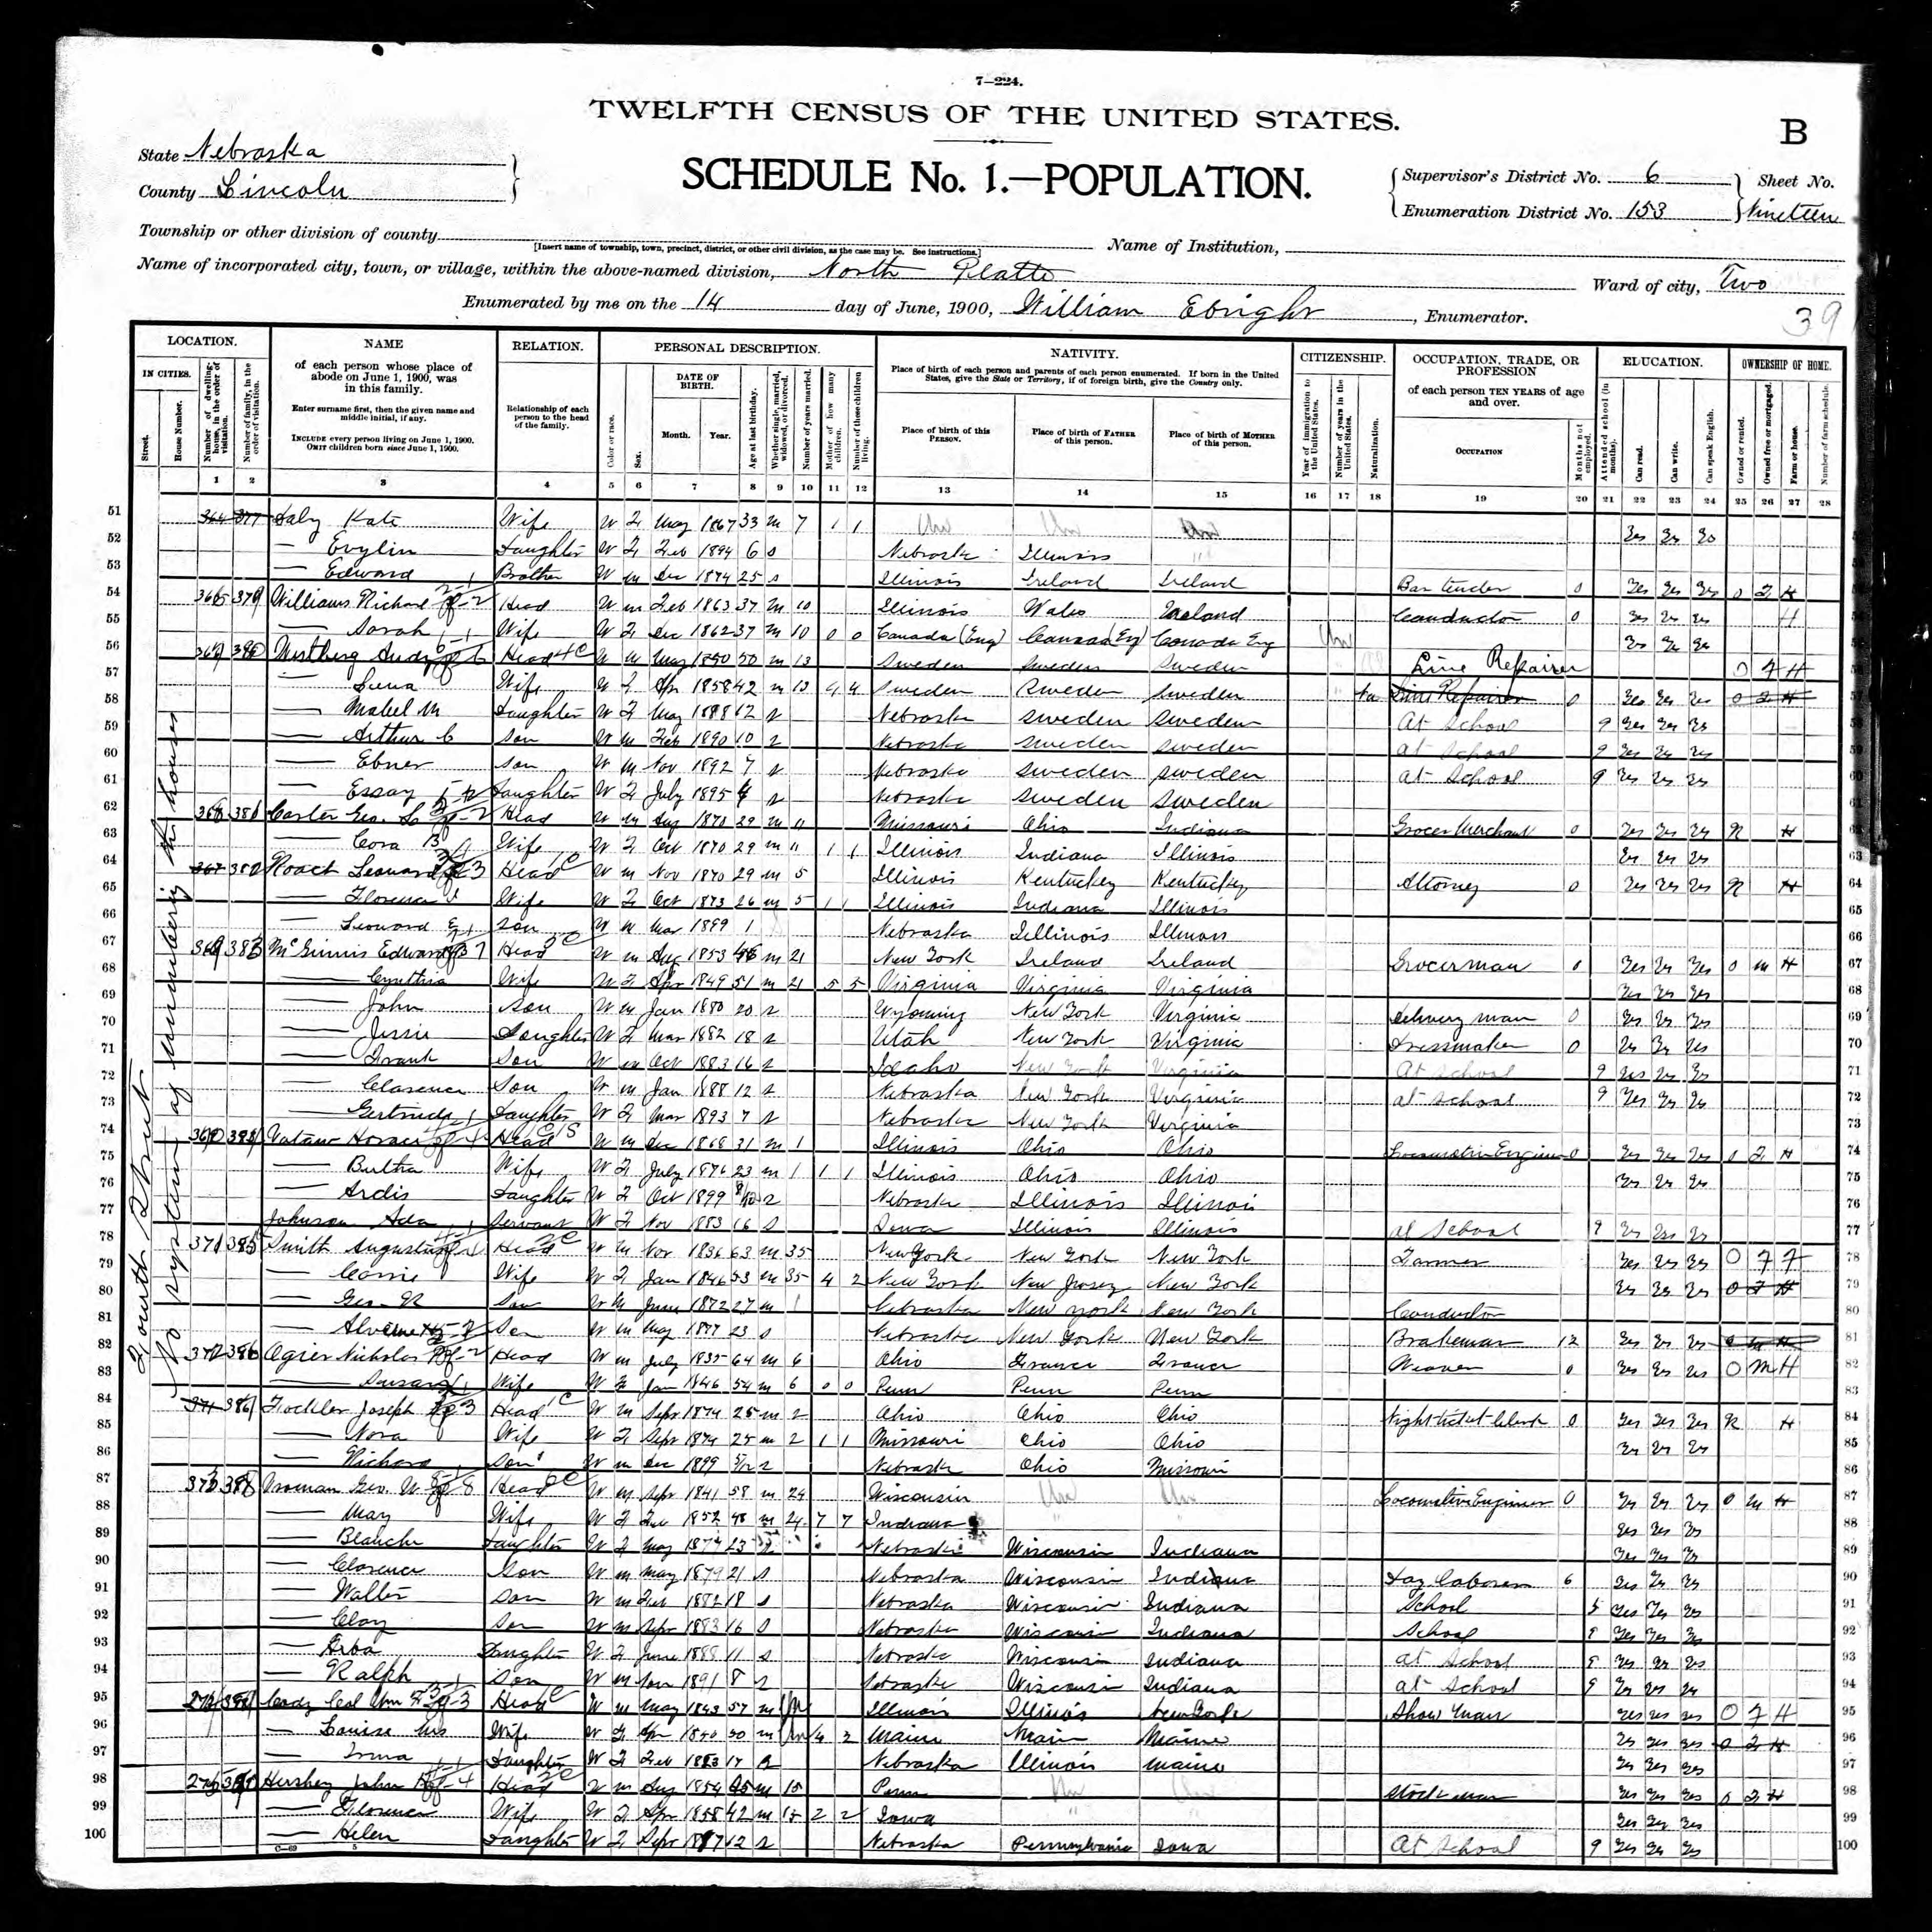 7—224.
TWELFTH CENSUS OF THE UNITED STATES.
B
State Nebraska
County Lincoln
SCHEDULE No. 1.—POPULATION.
Supervisor's District No. 6
Enumeration District No. 153
Sheet No.
Nineteen
Township or other division of county
[Insert name of township, town, precinct, district, or other civil division, as the case may be. See instructions.]
Name of Institution,
Name of incorporated city, town, or village, within the above-named division, North Platte
Ward of city, Two
Enumerated by me on the 14 day of June, 1900, William Ebright, Enumerator.
39
LOCATION. NAME RELATION. PERSONAL DESCRIPTION. NATIVITY. CITIZENSHIP. OCCUPATION, TRADE, OR PROFESSION EDUCATION. OWNERSHIP OF HOME.
IN CITIES.
Street.
House Number.
Number of dwelling-house, in the order of visitation.
Number of family, in the order of visitation.
of each person whose place of abode on June 1, 1900, was in this family.
Enter surname first, then the given name and middle initial, if any.
INCLUDE every person living on June 1, 1900.
OMIT children born since June 1, 1900.
Relationship of each person to the head of the family.
Color or race.
Sex.
DATE OF BIRTH.
Month. Year.
Age at last birthday.
Whether single, married, widowed, or divorced.
Number of years married.
Mother of how many children.
Number of these children living.
Place of birth of each person and parents of each person enumerated. If born in the United States, give the State or Territory, if of foreign birth, give the Country only.
Place of birth of this PERSON.
Place of birth of FATHER of this person.
Place of birth of MOTHER of this person.
Year of immigration to the United States.
Number of years in the United States.
Naturalization.
of each person TEN YEARS of age and over.
OCCUPATION
Months not employed.
Attended school (in months).
Can read.
Can write.
Can speak English.
Owned or rented.
Owned free or mortgaged.
Farm or house.
Number of farm schedule.
1 2 3 4 5 6 7 8 9 10 11 12 13 14 15 16 17 18 19 20 21 22 23 24 25 26 27 28
Fourth Street
No system of numbering the houses
51 Kate Wife W F May 1867 33 m 7 1 1 Un Un Un Yes Yes
52 — Evylin Daughter W F Feb 1894 6 s Nebraska Illinois
53 — Edward Brother W m Dec 1874 25 s Illinois Ireland Ireland Bar tender 0 Yes Yes Yes
54 Williams Richard Head W m Feb 1863 37 m 10 Illinois Wales Conductor 0 Yes Yes Yes H
55 — Sarah Wife W F Dec 1862 37 m 10 0 0 Canada (Eng) Canada (Eng) Canada Eng Un Yes Yes Yes
56 Head W m May 1850 50 m 13 Sweden Sweden Sweden Line Repairer O F H
57 — Wife W F Apr 1858 42 m 13 4 4 Sweden Sweden Sweden Na Line Repairer 0 Yes Yes Yes
58 — Mabel M Daughter W F May 1888 12 s Nebraska Sweden Sweden At School 9 Yes Yes Yes
59 — Arthur C Son W m Feb 1890 10 s Nebraska Sweden Sweden at School 9 Yes Yes Yes
60 — Ebner Son W m Nov 1892 7 s Nebraska Sweden Sweden at School 9 Yes Yes Yes
61 — Essay Daughter W F July 1895 4 s Nebraska Sweden Sweden
62 Carter Geo. Head W m Aug 1870 29 m 11 Missouri Ohio Indiana Grocer Merchant 0 Yes Yes Yes R H
63 — Cora B Wife W F Oct 1870 29 m 11 1 1 Illinois Indiana Illinois Yes Yes Yes
64 382 Leonard Head W m Nov 1870 29 m 5 Illinois Kentucky Kentucky Attorney 0 Yes Yes Yes R H
65 — Florence Wife W F Oct 1873 26 m 5 1 1 Illinois Indiana Illinois
66 — Leonard Son W m Mar 1899 1 Nebraska Illinois Illinois
67 383 McGinnis Edward Head W m Aug 1853 46 m 21 New York Ireland Ireland Grocerman 0 Yes Yes Yes O m H
68 — Cynthia Wife W F Apr 1849 51 m 21 5 5 Virginia Virginia Virginia Yes Yes Yes
69 — John Son W m Jan 1880 20 s Wyoming New York Virginia Delivery man 0 Yes Yes Yes
70 — Jessie Daughter W F Mar 1882 18 s Utah New York Virginia Dressmaker 0 Yes Yes Yes
71 — Frank Son W m Oct 1883 16 s Idaho New York Virginia At School 9 Yes Yes Yes
72 — Clarence Son W m Jan 1888 12 s Nebraska New York Virginia at School 9 Yes Yes Yes
73 — Gertrude Daughter W F Mar 1893 7 s Nebraska New York Virginia
74 Horace Head W m Dec 1868 31 m 1 Illinois Ohio Ohio Locomotive Engineer 0 Yes Yes Yes O F H
75 — Bertha Wife W F July 1876 23 m 1 1 1 Illinois Ohio Ohio Yes Yes Yes
76 — Ardis Daughter W F Oct 1899 8/12 s Nebraska Illinois Illinois
77 Johnson Ada Servant W F Nov 1883 16 s Iowa Illinois Illinois at School 9 Yes Yes Yes
78 371 385 Smith Augustus Head W m Nov 1836 63 m 35 New York New York New York Farmer Yes Yes Yes O F F
79 — Carrie Wife W F Jan 1846 53 m 35 4 2 New York New Jersey New York Yes Yes Yes O F H
80 — Geo. R Son W m June 1872 27 m 1 Nebraska New York New York Conductor
81 — Son W m May 1877 23 s Nebraska New York New York Brakeman 12 Yes Yes Yes
82 372 386 Ogier Nicholas Head W m July 1835 64 m 6 Ohio France France Weaver 0 Yes Yes Yes O M H
83 — Susan Wife W F Jan 1846 54 m 6 0 0 Penn Penn Penn
84 371 387 Joseph Head W m Sept 1874 25 m 2 Ohio Ohio Ohio Night ticket Clerk 0 Yes Yes Yes R H
85 — Nora Wife W F Sept 1874 25 m 2 1 1 Missouri Ohio Ohio Yes Yes Yes
86 — Richard Son W m Dec 1899 5/12 s Nebraska Ohio Missouri
87 373 388 Vroman Geo. W Head W m Sept 1841 58 m 24 Wisconsin Un Un Locomotive Engineer 0 Yes Yes Yes O m H
88 — May Wife W F Dec 1852 48 m 24 7 7 Indiana " " Yes Yes Yes
89 — Blanche Daughter W F May 1877 23 Nebraska Wisconsin Indiana Yes Yes Yes
90 — Clarence Son W m May 1879 21 s Nebraska Wisconsin Indiana Day Laborer 6 Yes Yes Yes
91 — Walter Son W m Feb 1882 18 s Nebraska Wisconsin Indiana School 5 Yes Yes Yes
92 — Clay Son W m Sept 1883 16 s Nebraska Wisconsin Indiana School 8 Yes Yes Yes
93 — Arba Daughter W F June 1888 11 s Nebraska Wisconsin Indiana at School 8 Yes Yes Yes
94 — Ralph Son W m 1891 8 s Nebraska Wisconsin Indiana at School 9 Yes Yes Yes
95 Cody Col Wm F Head W m May 1843 57 m Illinois Illinois New York Show Man Yes Yes Yes O F H
96 — Louise Mrs Wife W F Apr 1850 50 m 4 2 Maine Main Maine Yes Yes Yes O F H
97 — Irma Daughter W F Feb 1883 17 s Nebraska Illinois Maine Yes Yes Yes
98 Hershey John Head W m Aug 1854 45 m 15 Penn Un Un Stockman Yes Yes Yes O F H
99 — Florence Wife W F Apr 1858 42 m 15 2 2 Iowa " " Yes Yes Yes
100 — Helen Daughter W F Sept 1887 12 s Nebraska Pennsylvania Iowa At School 9 Yes Yes Yes